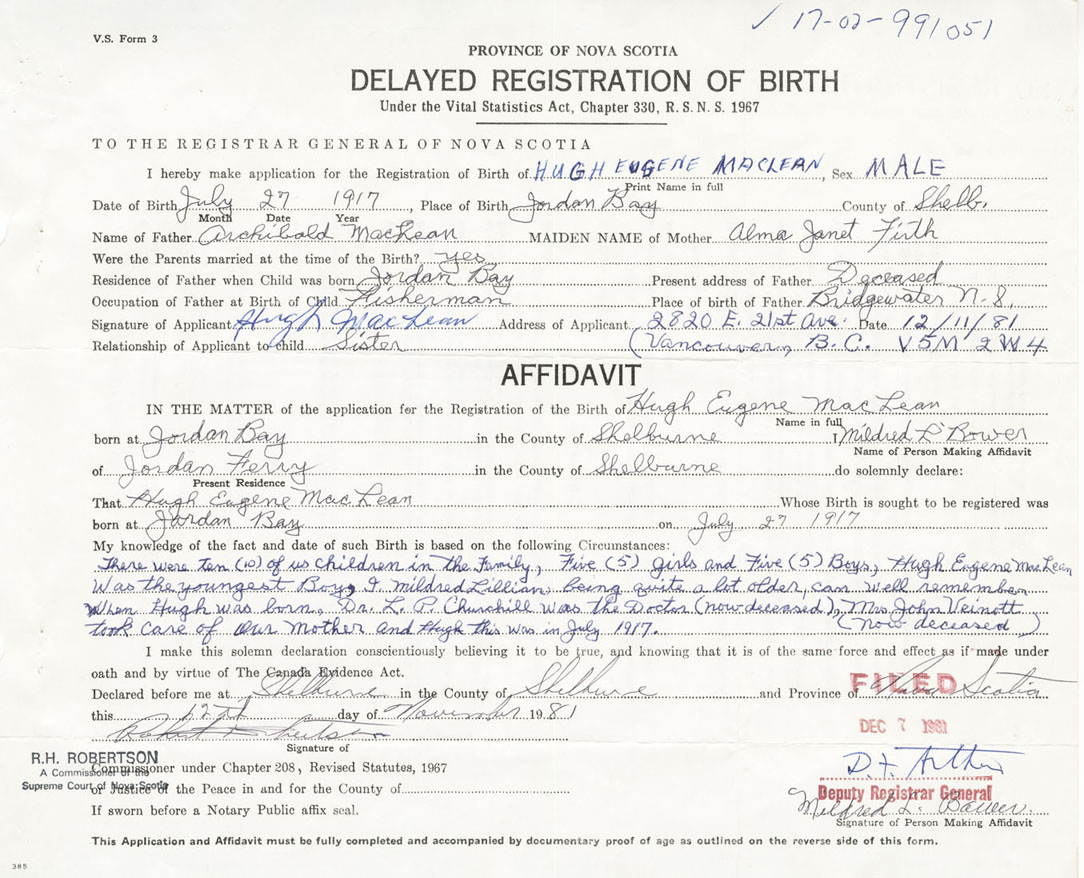 ✓ 17-02-991051
V.S. Form 3
PROVINCE OF NOVA SCOTIA
DELAYED REGISTRATION OF BIRTH
Under the Vital Statistics Act, Chapter 330, R.S.N.S. 1967
TO THE REGISTRAR GENERAL OF NOVA SCOTIA
I hereby make application for the Registration of Birth of HUGH EUGENE MACLEAN, Sex MALE
Print Name in full
Date of Birth July 27 1917, Place of Birth Jordan Bay County of Shelb.
Month Date Year
Name of Father Archibald MacLean MAIDEN NAME of Mother Alma Janet Firth
Were the Parents married at the time of the Birth? yes
Residence of Father when Child was born Jordan Bay Present address of Father Deceased
Occupation of Father at Birth of Child Fisherman Place of birth of Father Bridgewater N.S.
Signature of Applicant Hugh MacLean Address of Applicant 2820 E. 21st Ave. Date 12/11/81
Relationship of Applicant to child Sister (Vancouver, B.C. V5M 2W4
AFFIDAVIT
IN THE MATTER of the application for the Registration of the Birth of Hugh Eugene MacLean
Name in full
born at Jordan Bay in the County of Shelburne I Mildred L Bower
Name of Person Making Affidavit
of Jordan Ferry in the County of Shelburne do solemnly declare:
Present Residence
That Hugh Eugene MacLean Whose Birth is sought to be registered was
born at Jordan Bay on July 27 1917
My knowledge of the fact and date of such Birth is based on the following Circumstances:
There were ten (10) of us children in the Family, Five (5) girls and Five (5) Boys, Hugh Eugene MacLean
Was the youngest Boy, I, Mildred Lillian, being quite a lot older, can well remember
When Hugh was born, Dr. L. P. Churchill was the Doctor (now deceased), Mrs John Veinott
took care of our Mother and Hugh this was in July 1917. (now deceased)
I make this solemn declaration conscientiously believing it to be true, and knowing that it is of the same force and effect as if made under
oath and by virtue of The Canada Evidence Act.
Declared before me at Shelburne in the County of Shelburne and Province of Nova Scotia
FILED
this 12th day of November 1981
DEC 7 1981
Signature of
R.H. ROBERTSON
A Commissioner of the
Supreme Court of Nova Scotia
Commissioner under Chapter 208, Revised Statutes, 1967
or Justice of the Peace in and for the County of
D. F. Arthur
Deputy Registrar General
Mildred L. Bower
If sworn before a Notary Public affix seal.
Signature of Person Making Affidavit
This Application and Affidavit must be fully completed and accompanied by documentary proof of age as outlined on the reverse side of this form.
385